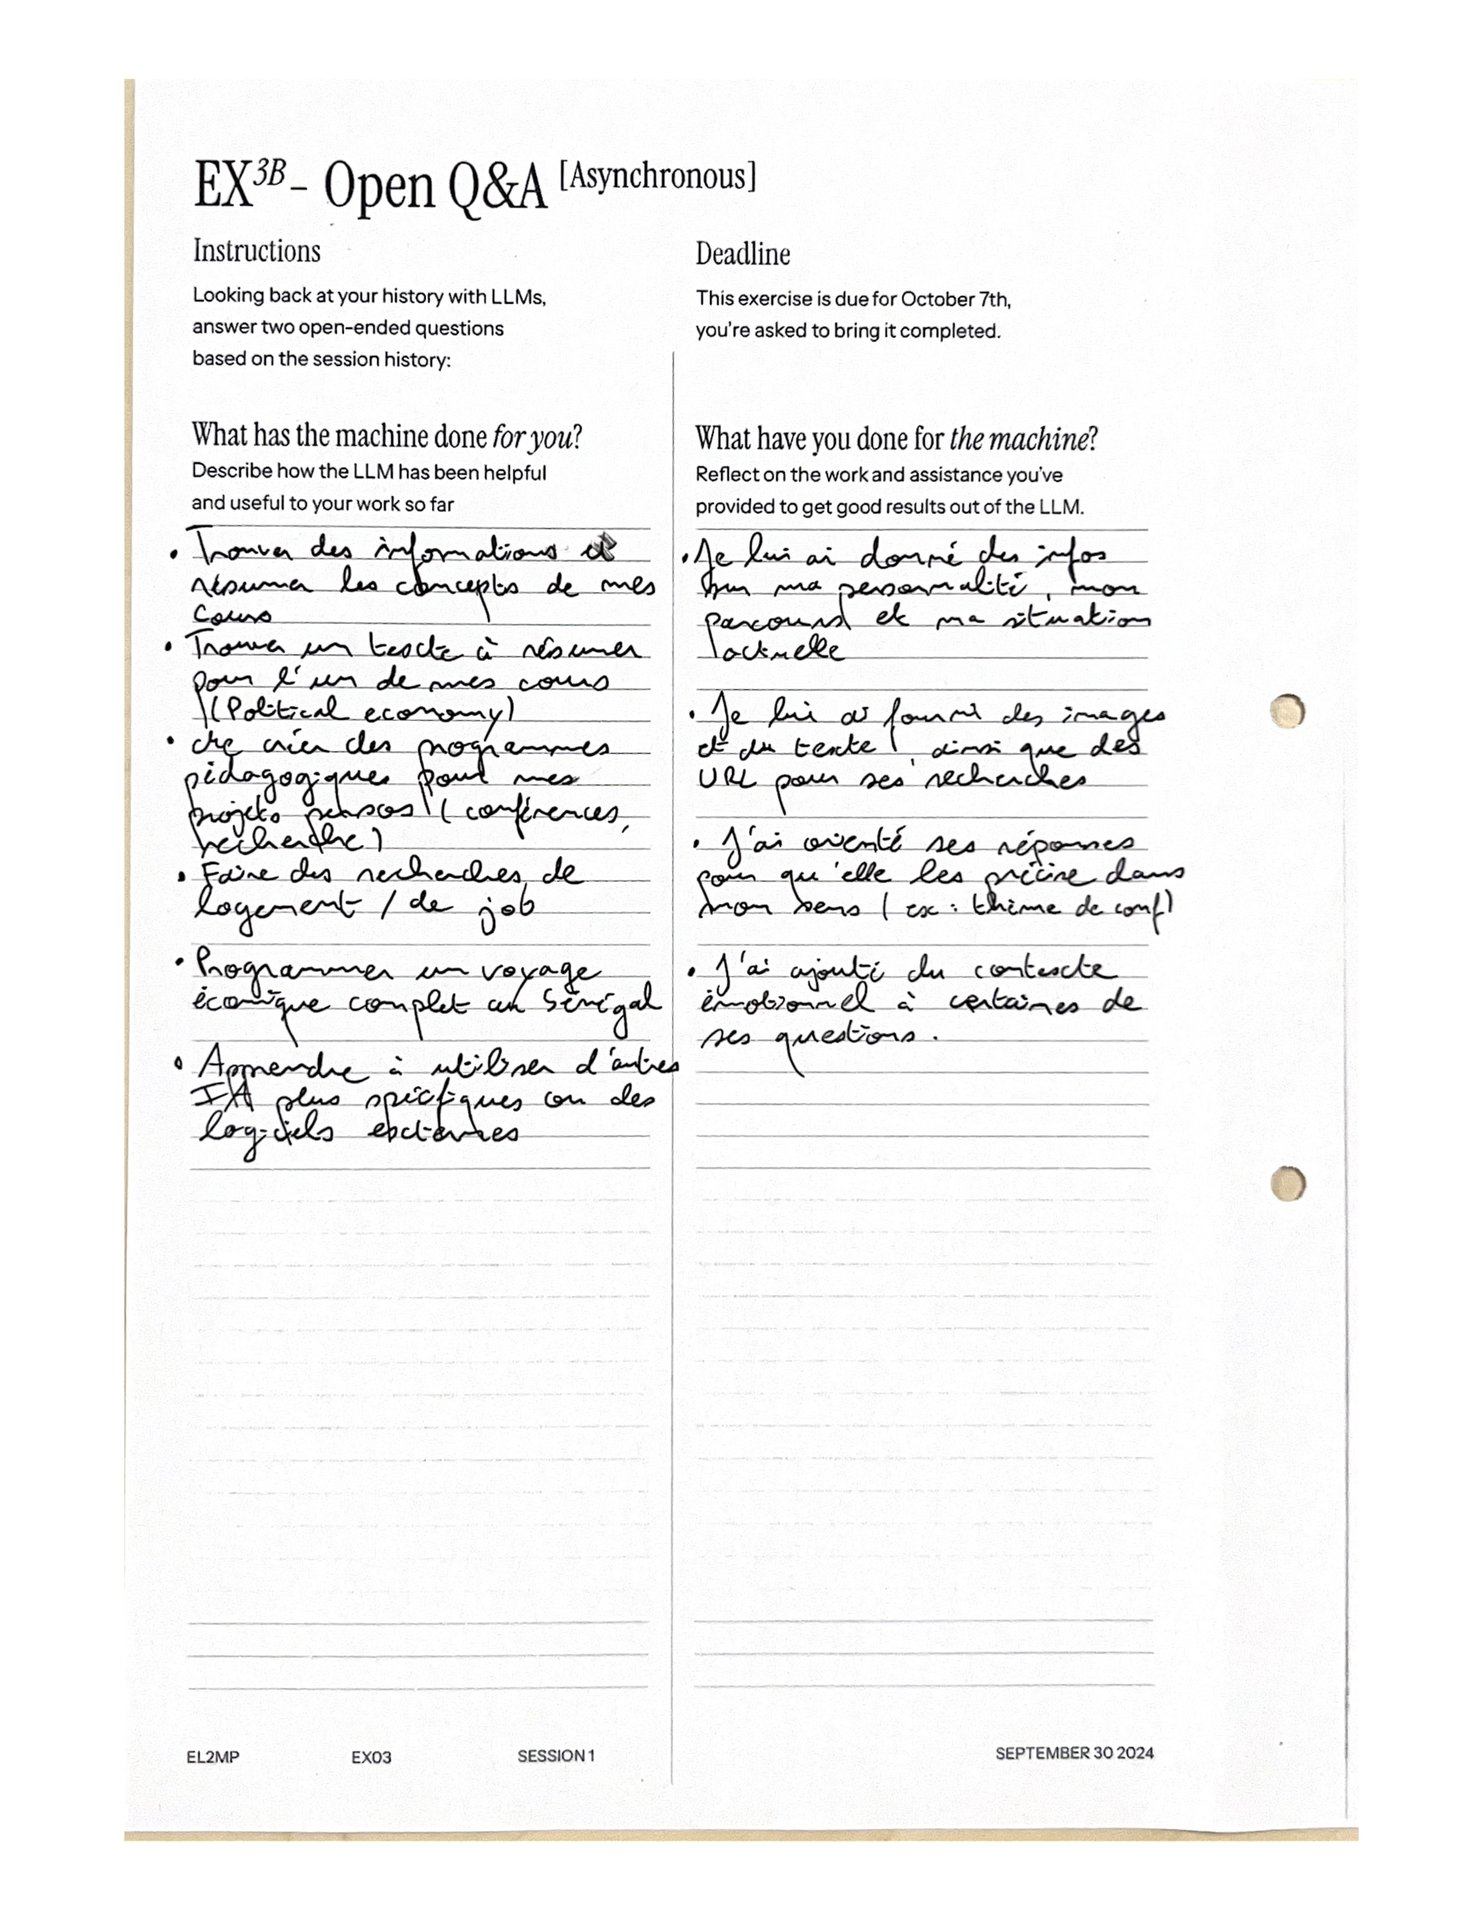 EX3B – Open Q&A [Asynchronous]
Instructions
Looking back at your history with LLMs,
answer two open-ended questions
based on the session history:
Deadline
This exercise is due for October 7th,
you're asked to bring it completed.
What has the machine done for you?
Describe how the LLM has been helpful
and useful to your work so far
• Trouver des informations et
résumer les concepts de mes
cours
• Trouver un texte à résumer
pour l'un de mes cours
(Political economy)
• créer des programmes
pédagogiques pour mes
projets persos (conférences,
recherche)
• Faire des recherches de
logement / de job
• Programmer un voyage
complet au Sénégal
• Apprendre à utiliser d'autres
IA plus spécifiques ou des
logiciels externes
What have you done for the machine?
Reflect on the work and assistance you've
provided to get good results out of the LLM.
• Je lui ai donné des infos
sur ma personnalité, mon
parcours et ma situation
actuelle
• Je lui ai fourni des images
et du texte, ainsi que des
URL pour ses recherches
• J'ai orienté ses réponses
pour qu'elle les précise dans
mon sens (ex : thème de conf)
• J'ai ajouté du contexte
émotionnel à certaines de
ses questions.
EL2MP EX03 SESSION 1 SEPTEMBER 30 2024